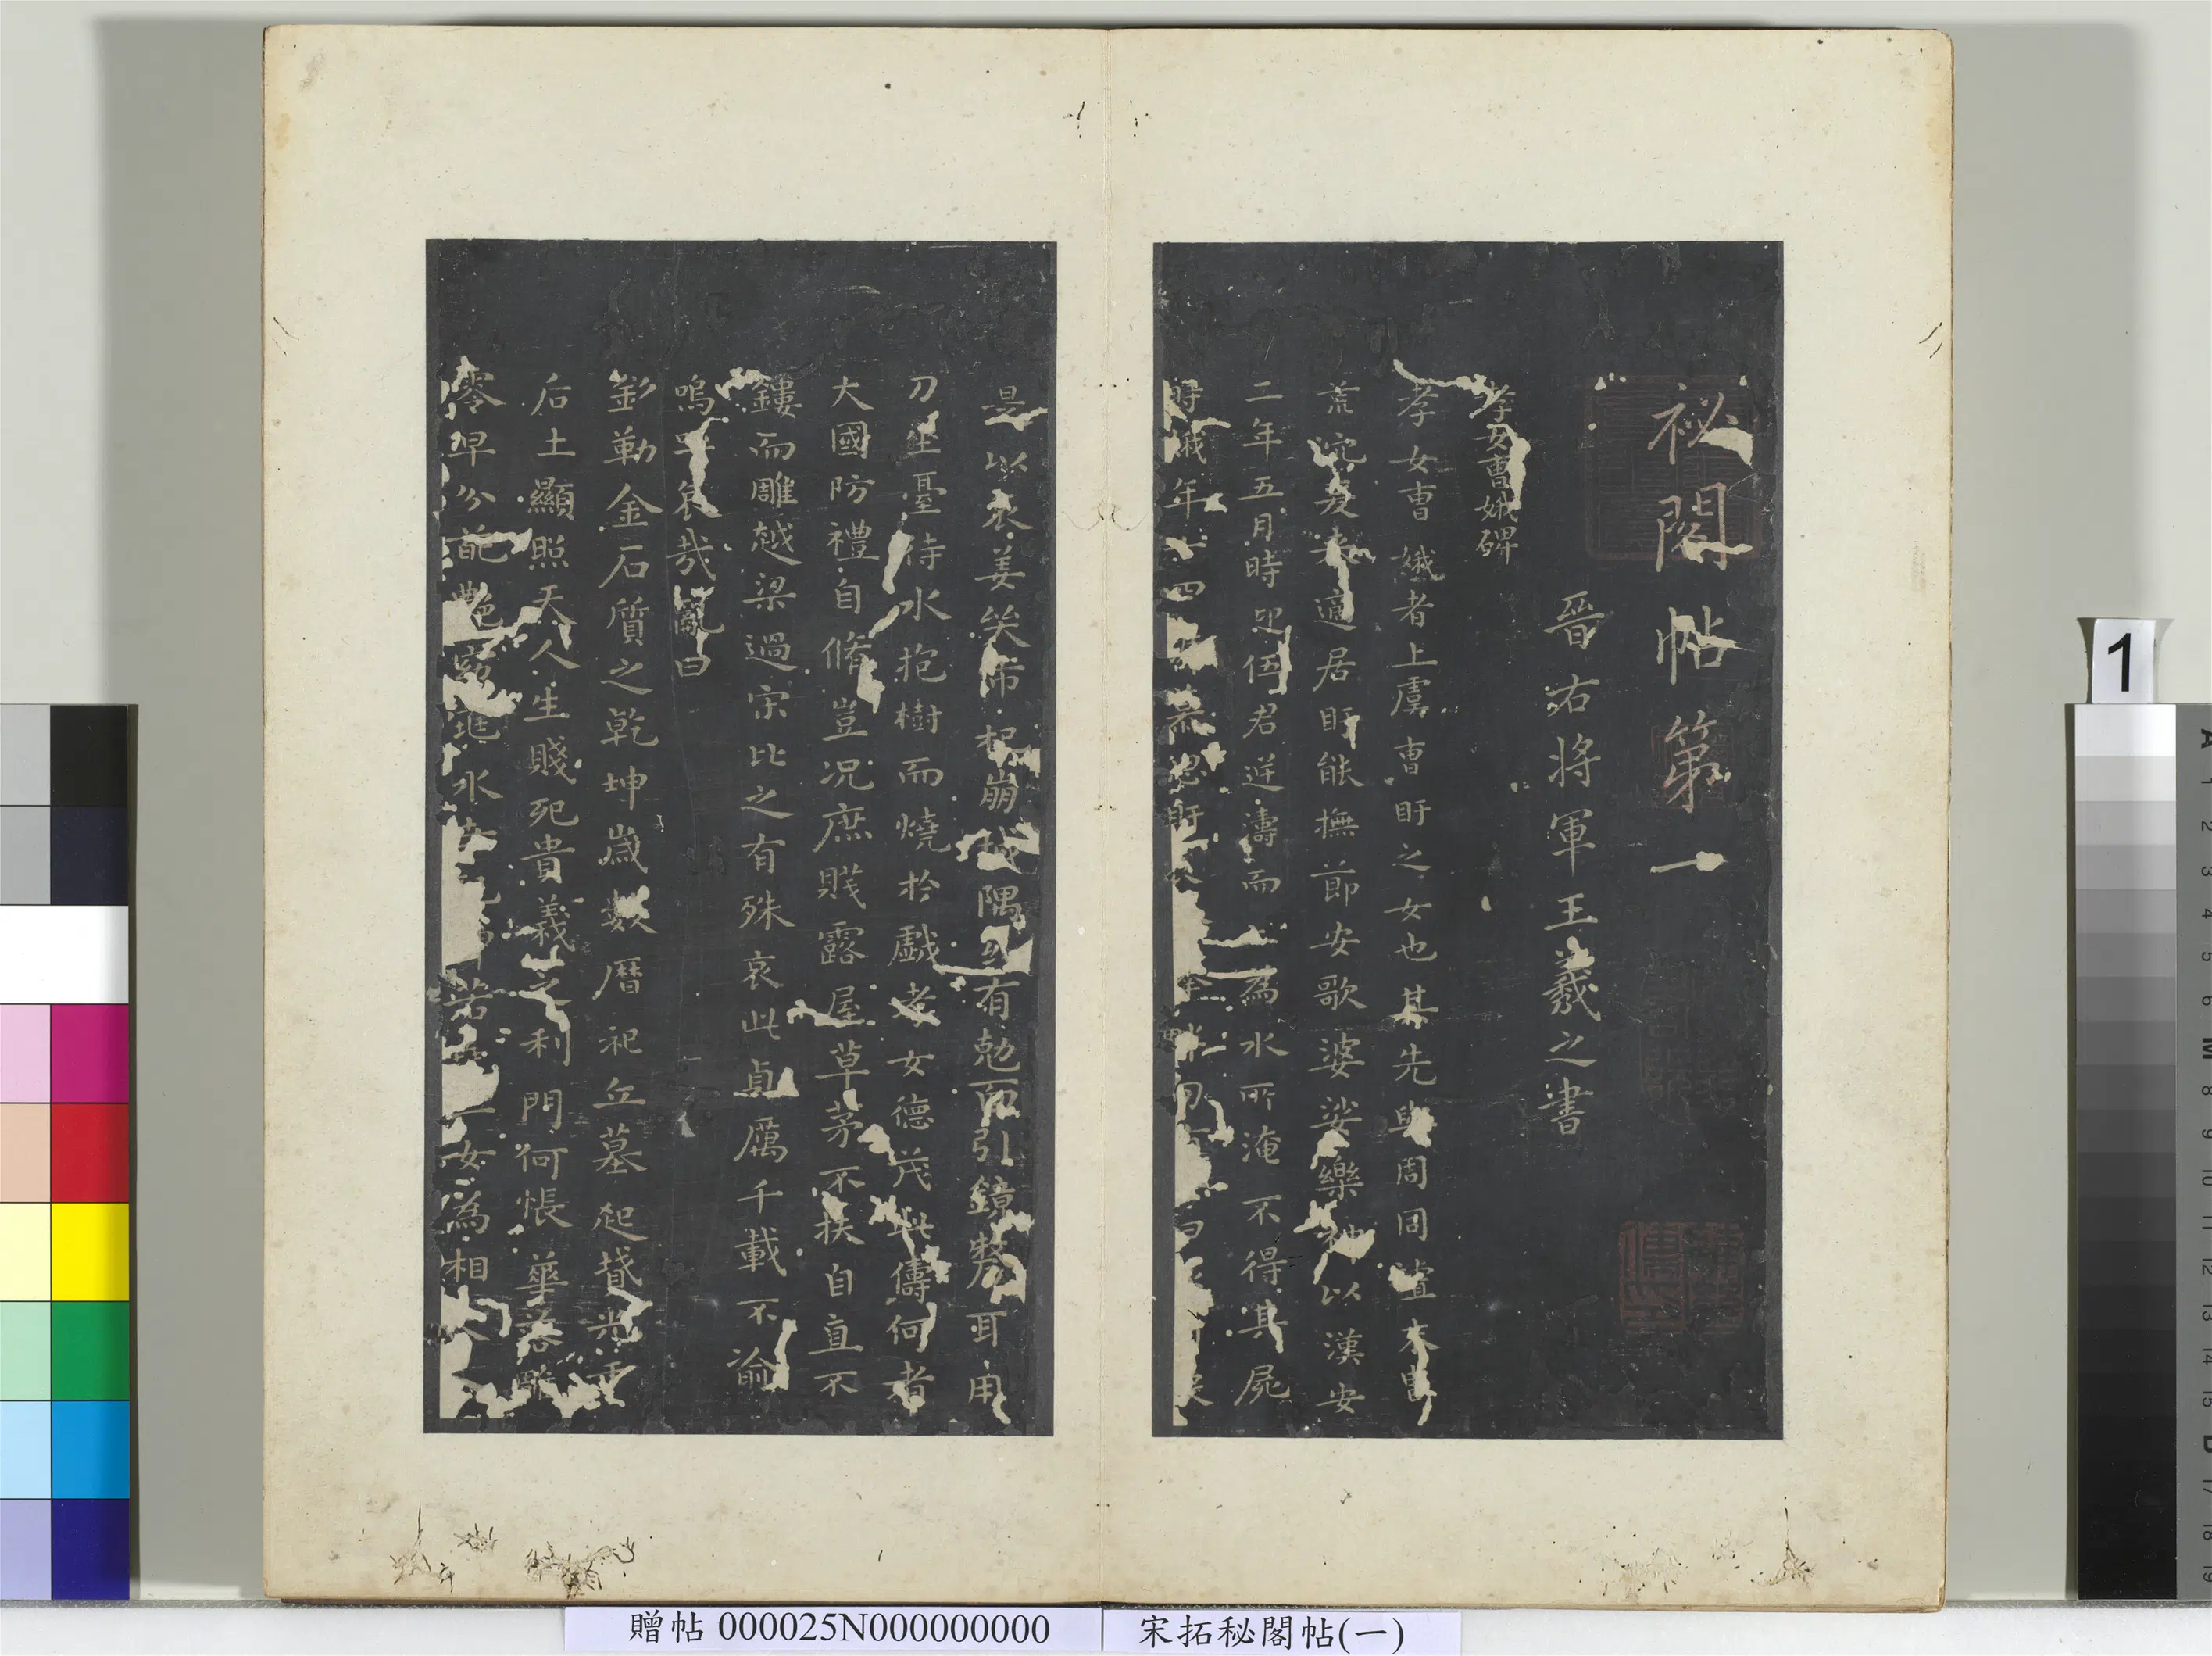 祕閣帖第一
晉右將軍王羲之書
孝女曹娥碑
孝女曹娥者上虞曹盱之女也其先與周同祖末胄
荒沉爰来適居盱能撫節安歌婆娑樂神以漢安
二年五月時迎伍君逆濤而上為水所淹不得其屍
時娥年十四
是以哀姜哭市杞崩城隅或有剋面引鏡剺耳用
刀坐臺待水抱樹而燒於戲孝女德茂此儔何者
大國防禮自脩豈况庶賤露屋草茅不扶自直不
鏤而雕越梁過宋比之有殊哀此貞厲千載不渝
嗚呼哀哉亂曰
銘勒金石質之乾坤歲數曆祀丘墓起墳光于
后土顯照天人生賤死貴義之利門何悵華落雕
零早分葩艷窈窕 水 若 女為相夫人
1
贈帖 000025N000000000
宋拓秘閣帖(一)